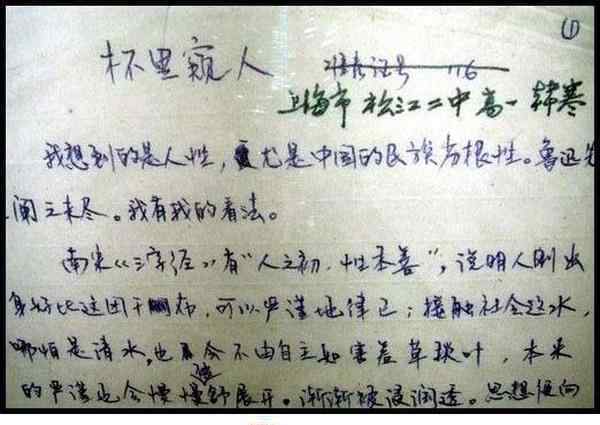 ①
杯里窥人 准考证号 116
上海市松江二中高一 韩寒
我想到的是人性,尤是中国的民族劣根性。鲁迅先
阐之未尽。我有我的看法。
南宋《三字经》有“人之初,性本善”,说明人刚出
身好比这团干布,可以严谨地律己;接触社会这水,
哪怕是清水,也会不由自主如害羞草拢叶,本来
的严谨也会慢慢舒展开。渐渐被浸润透。思想便向